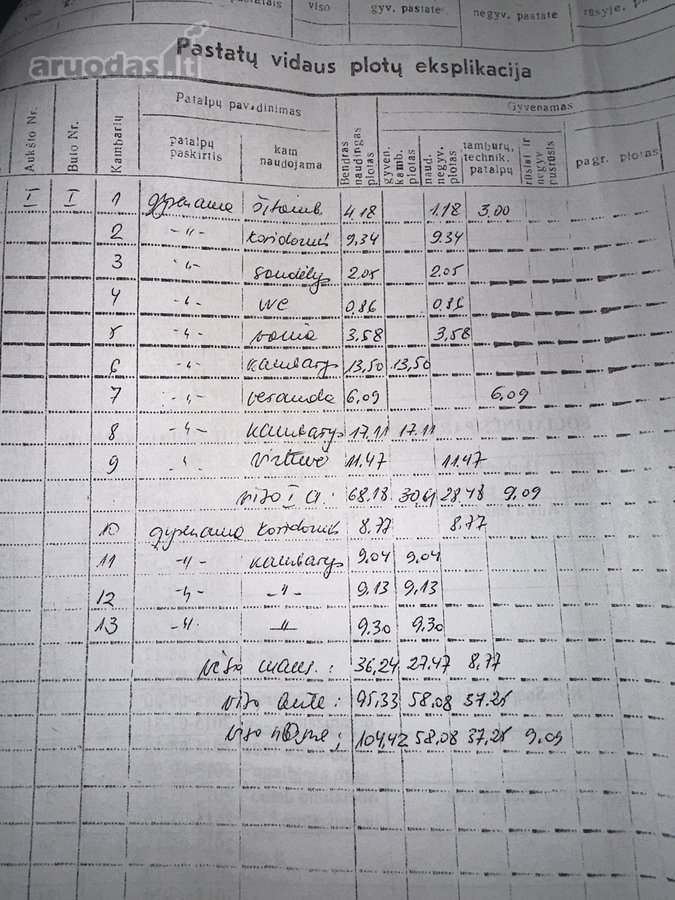 viso gyv. pastate negyv. pastate
Pastatų vidaus plotų eksplikacija
aruodas.lt
Aukšto Nr. Buto Nr. Kambarių Patalpų pavadinimas Gyvenamas
patalpų paskirtis kam naudojama Bendras naudingas plotas gyven. kamb. plotas naud. negyv. plotas tamburų, technik. patalpų rūsiai ir negyv pusrūsis pagr. plotas
I I 1 gyvenama 4.18 1.18 3,00
2 -"- koridorius 9,34 9.34
3 -"- sandėlys 2.05 2.05
4 -"- WC 0,86 0,86
5 -"- vonia 3,58 3,58
6 -"- kambarys 13,50 13,50
7 -"- veranda 6,09 6,09
8 -"- kambarys 17,11 17,11
9 -"- virtuvė 11.47 11.47
viso I a: 68.18 30,61 28.48 9,09
10 gyvenama koridorius 8,77 8,77
11 -"- kambarys 9,04 9,04
12 -"- -"- 9,13 9,13
13 -"- -"- 9,30 9,30
viso mans.: 36,24 27.47 8,77
viso bute: 95,33 58,08 37.25
viso name: 104,42 58,08 37,25 9,09